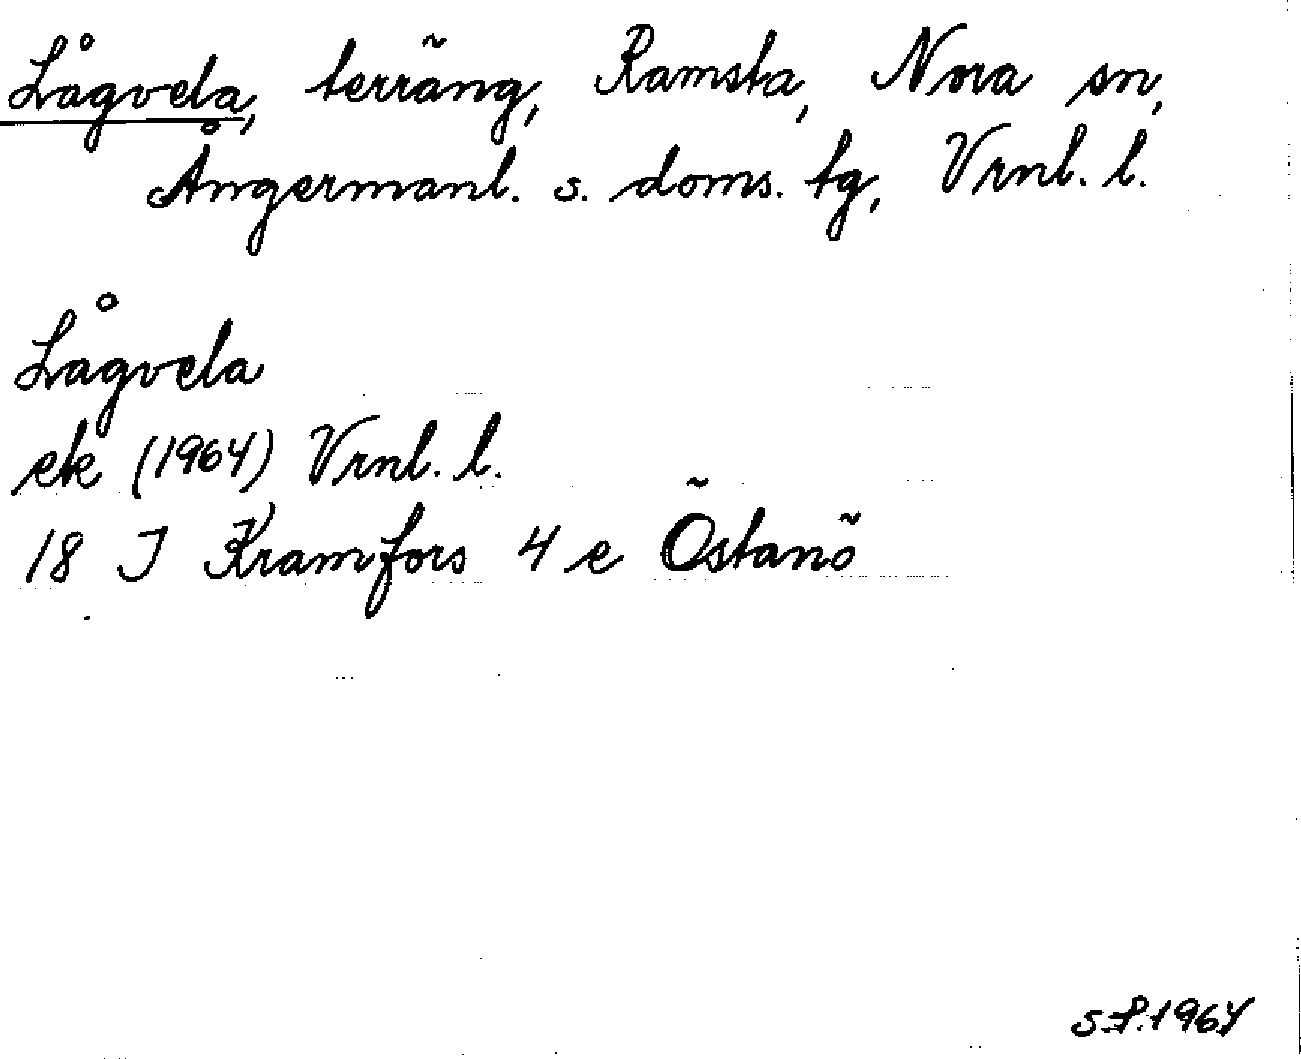 Lågvela, terräng, Ramsta, Nora sn,
Ångermanl. s. doms. tg, Vrnl. l.
Lågvela
ek (1964) Vrnl. l.
18 I Kramfors 4 e Östanö
S.P. 1964